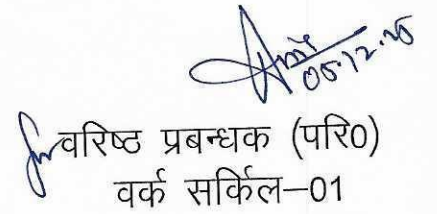 05.12.25
वरिष्ठ प्रबन्धक (परि०)
वर्क सर्किल–01